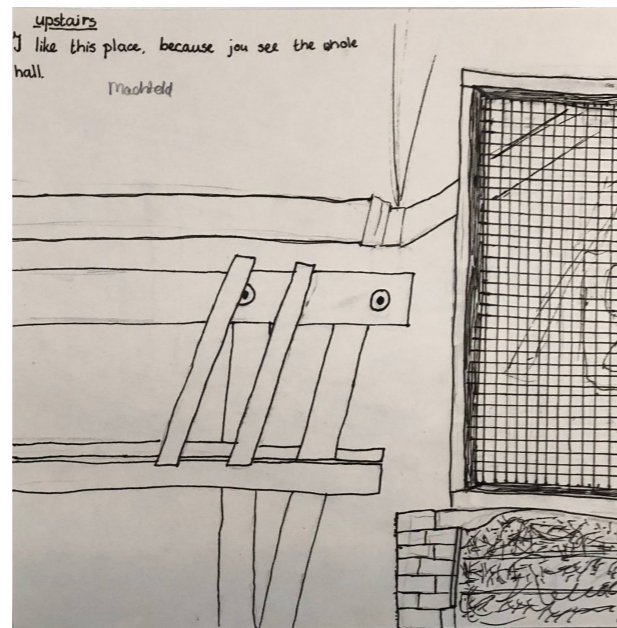 upstairs
I like this place, because jou see the whole
hall.
Machteld